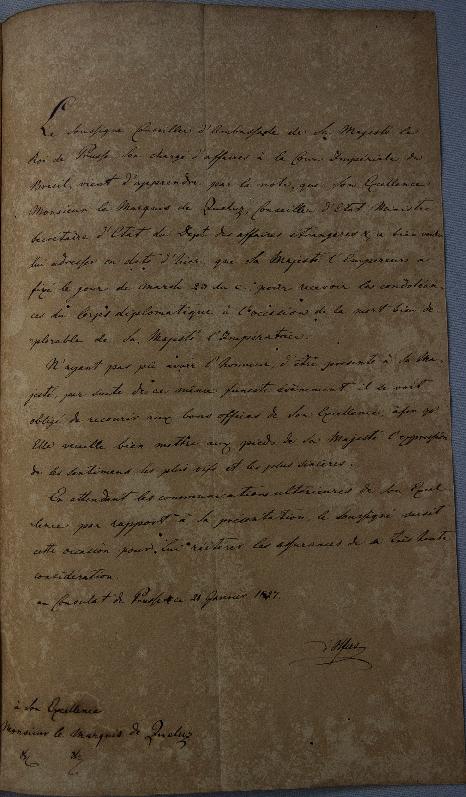 Le Soussigné Conseiller d'Ambassade de Sa Majesté le
Roi de Prusse Son chargé d'affaires à la Cour Impériale du
Bresil, vient d'apprendre par la note, que Son Excellence
Monsieur le Marquis de Queluz, Conseiller d'Etat Ministre
Secretaire d'Etat du Dept des affaires etrangeres &, a bien voulu
lui adresser en date d'hier, que Sa Majesté l'Empereur a
fixé le jour de mardi 23 du c. pour recevoir les condoléan-
ces du Corps diplomatique à l'occasion de la mort bien de-
plorable de Sa Majesté l'Imperatrice.
N'ayant pas pû avoir l'honneur, d'être presenté à Sa Ma-
jesté, par suite de ce même funeste évènement il se voit
obligé de recourir aux bons offices de Son Excellence, afin qu'
Elle veuille bien mettre aux pieds de Sa Majesté l'expression
de les sentimens les plus vifs et les plus sincères.
En attendant les communications ultérieures de Son Excel-
lence par rapport à la présentation, le soussigné saisit
cette occasion pour Lui réitérer les assurances de sa très haute
consideration
au Consulat de Prusse ce 21 Janvier 1827.
d'Olfers
à Son Excellence
Monsieur le Marquis de Queluz
& &